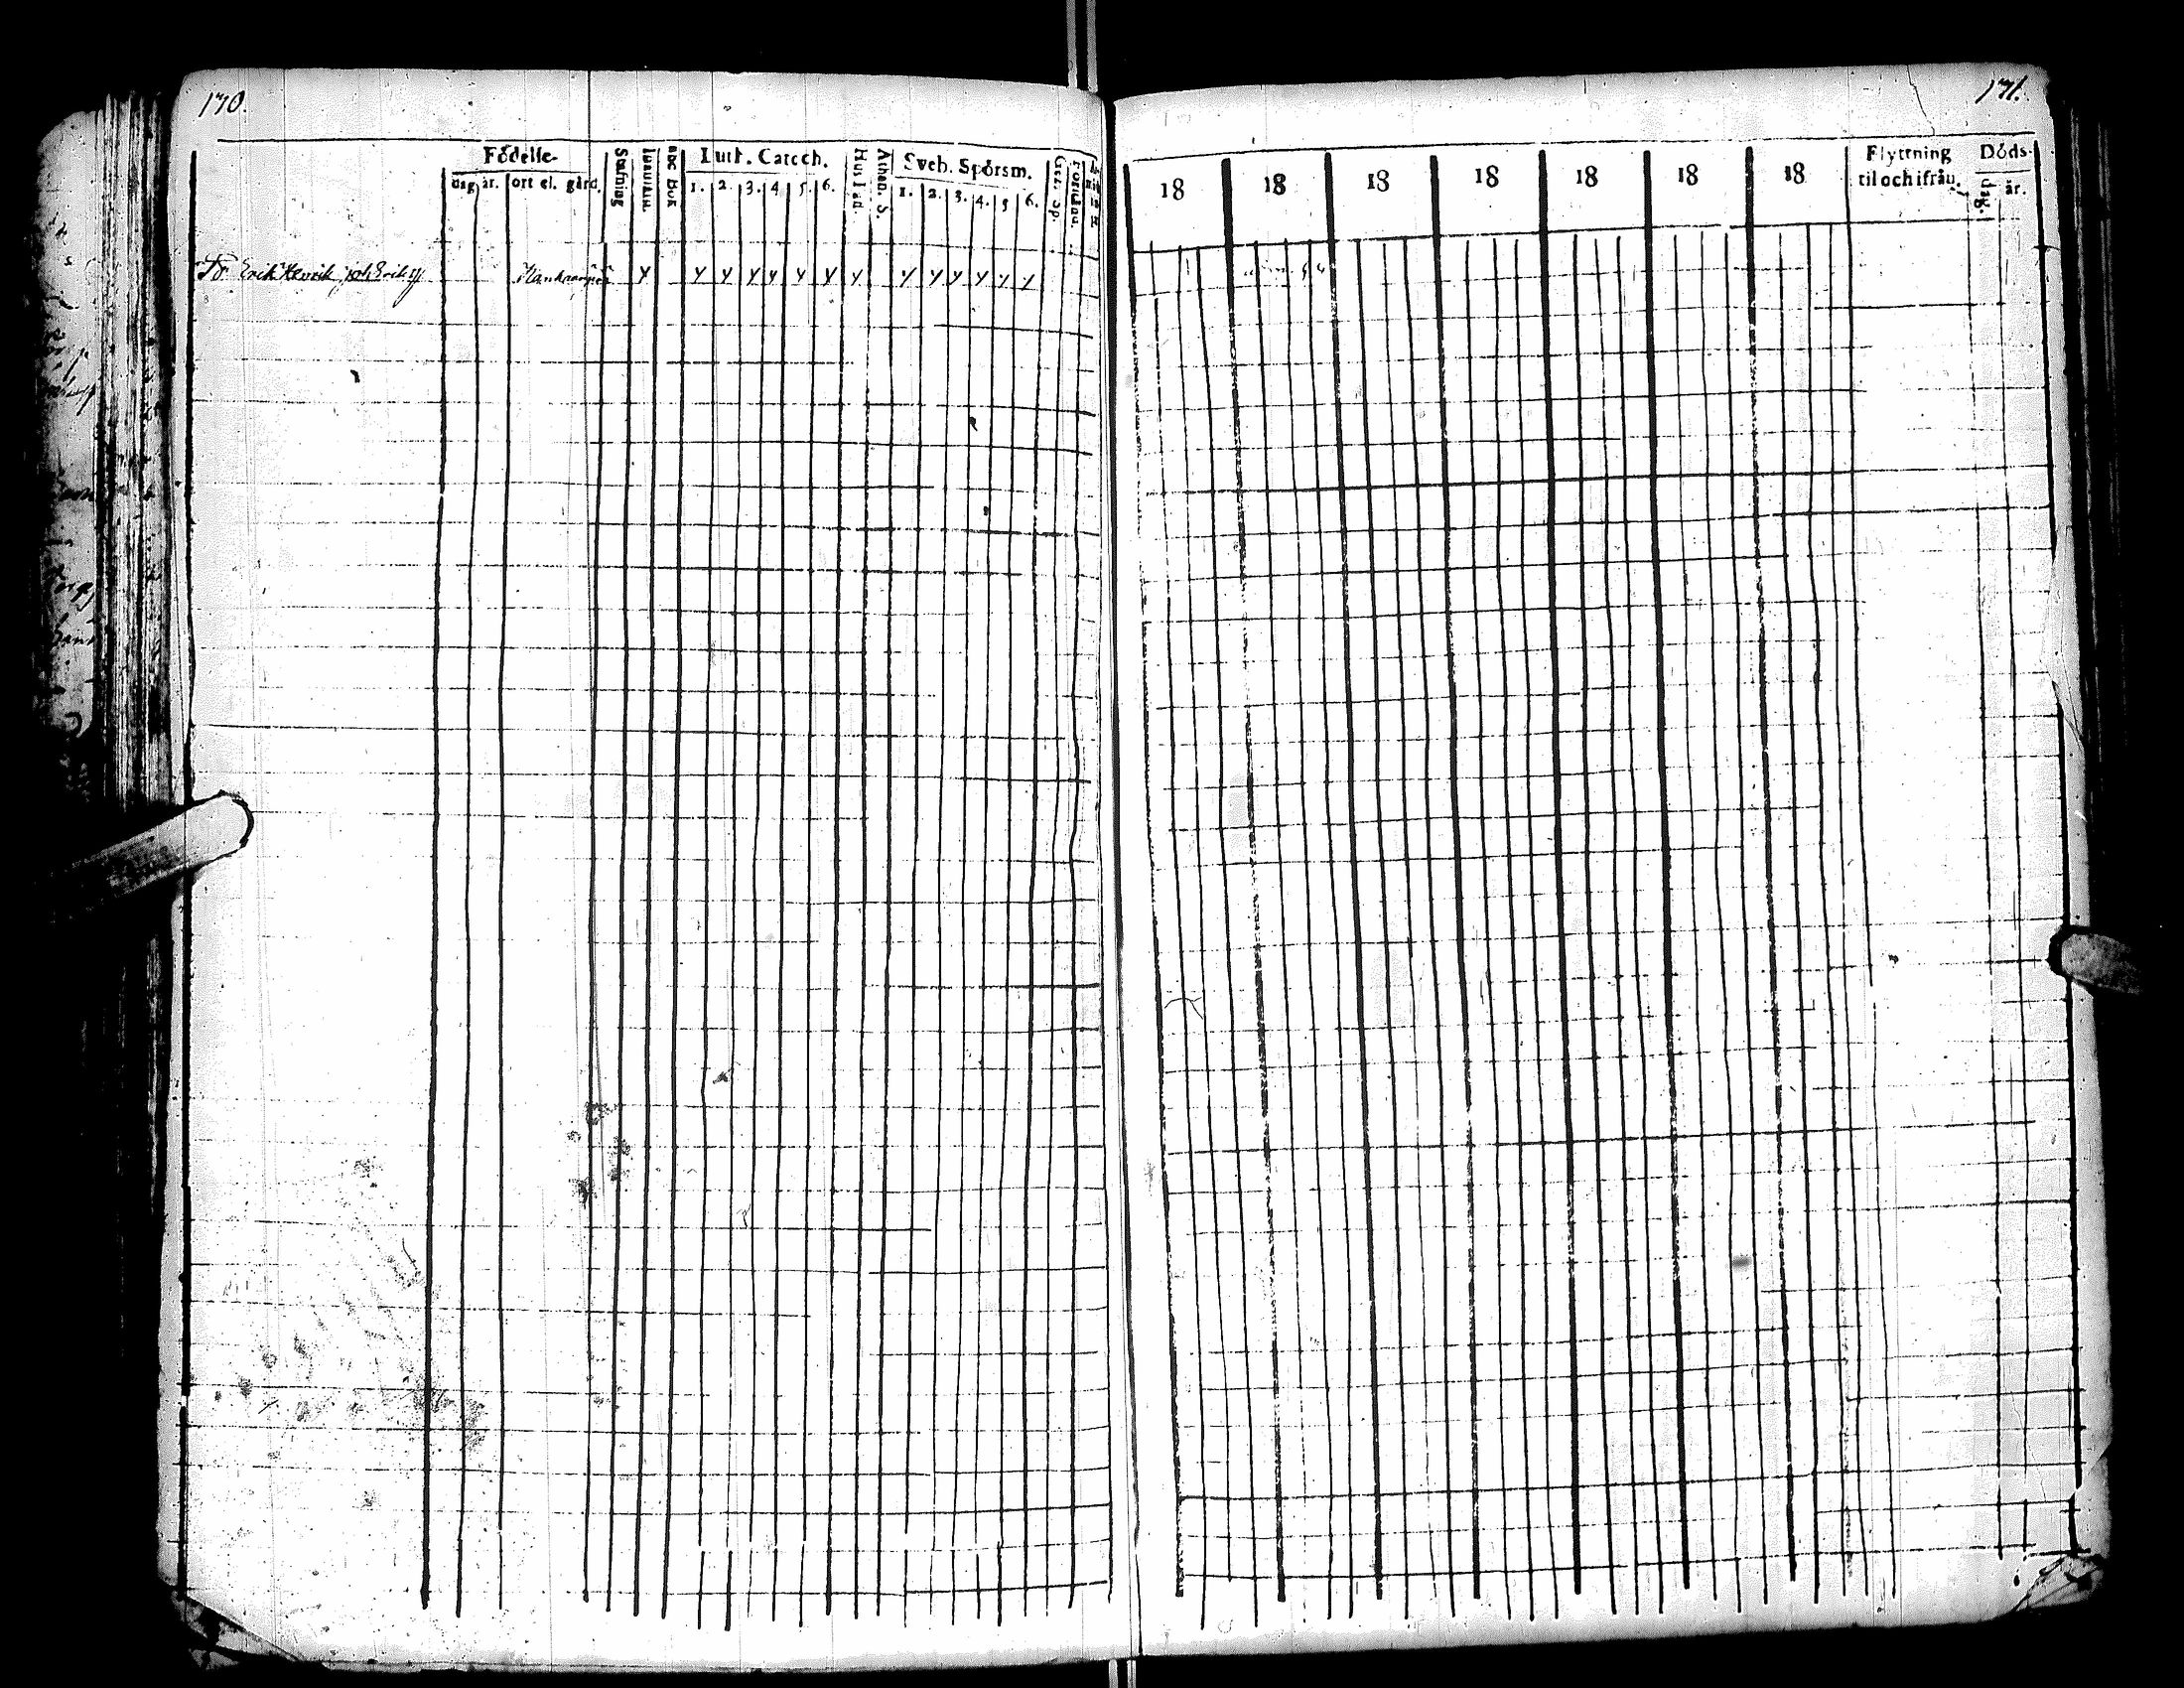 170.
171.
Födelse-
dag år. ort el. gård.
Stafning
Innantil.
abc Bok
Luth. Catech.
1. 2. 3. 4 5. 6.
Hus Taf.
Athan. S.
Sveb. Spörsm.
1. 2. 3. 4. 5 6.
18 18 18 18 18 18 18
Flyttning
til och ifrån.
Döds-
dag. år.
Erik Henrik
y y y y y y y y y y y y y y